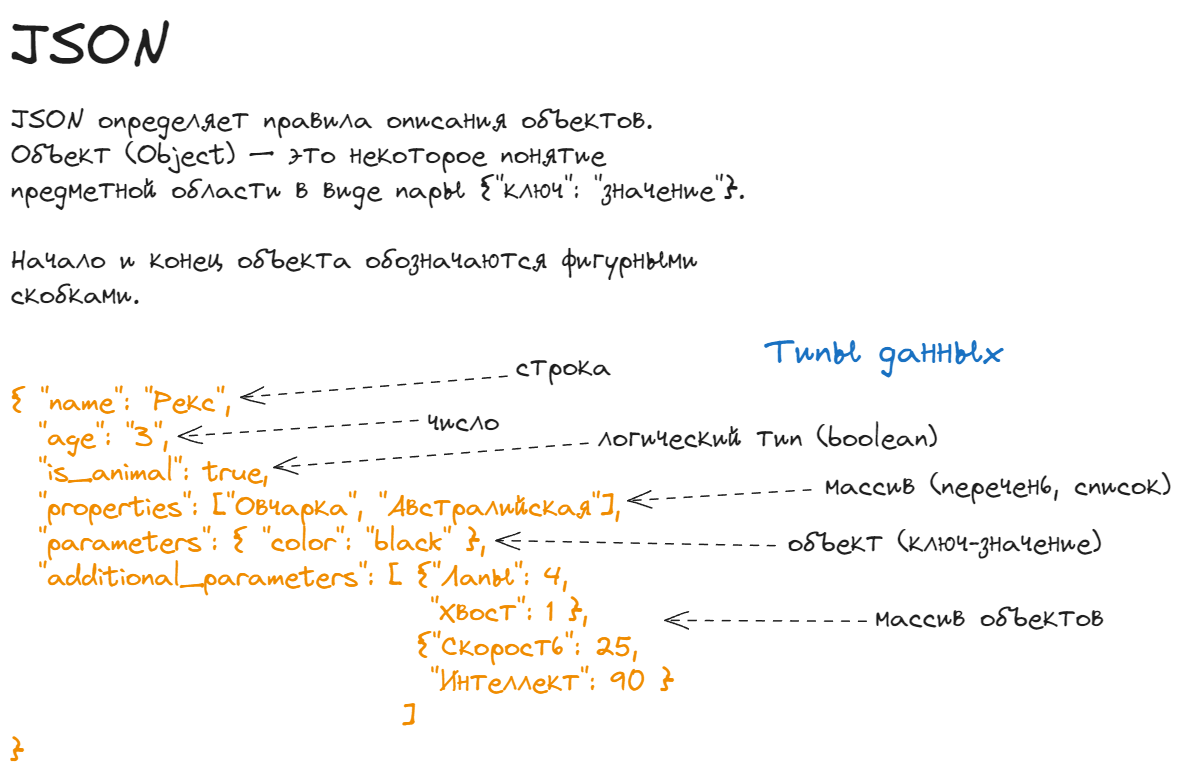 JSON
JSON определяет правила описания объектов.
Объект (Object) — это некоторое понятие
предметной области в виде пары {"ключ": "значение"}.
Начало и конец объекта обозначаются фигурными
скобками.
Типы данных
строка
{ "name": "Рекс",
число
"age": "3",
логический тип (boolean)
"is_animal": true,
массив (перечень, список)
"properties": ["Овчарка", "Австралийская"],
объект (ключ-значение)
"parameters": { "color": "black" },
"additional_parameters": [ {"Лапы": 4,
"Хвост": 1 },
массив объектов
{"Скорость": 25,
"Интеллект": 90 }
]
}